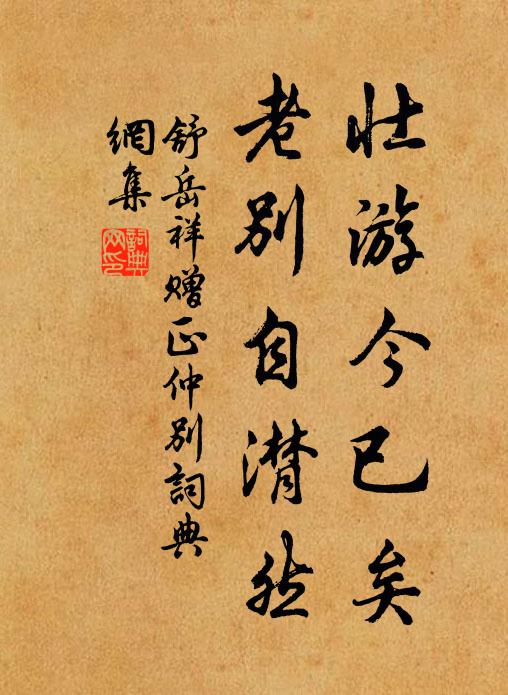 壮游今已矣
老别自潸然
舒岳祥赠正仲别詞典
網集
詞典
网印